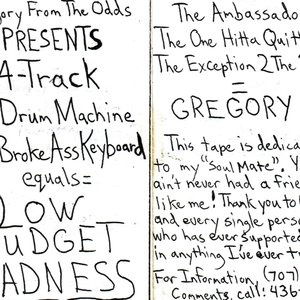 ory From The Odds
PRESENTS
4-Track
Drum Machine
BrokeAssKeyboard
equals=
LOW
BUDGET
MADNESS
The Ambassado
The One Hitta Quitt
The Exception 2 The
=
GREGORY
This tape is dedica
to my "Soul Mate". Y
ain't never had a frie
like me! Thank you to
and every single perso
who has ever supporte
in anything I've ever t
For Information, (707)
Comments call: 436-